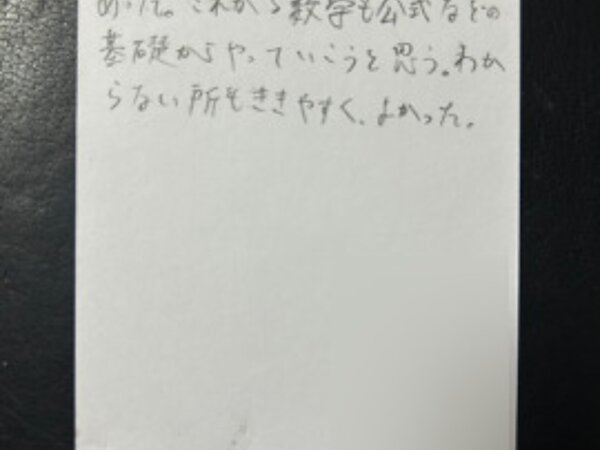 あった。これから数学も公式などの
基礎からやっていこうと思う。わか
らない所もききやすく、よかった。